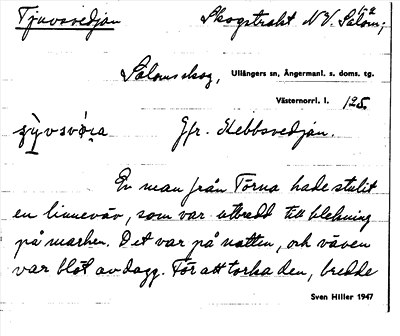 Tjuvsvedjan Skogstrakt NV. Salom;
Saloms skog, Ullångers sn, Ångermanl. s. doms. tg.
Västernorrl. l. 125.
Jfr. Hebbsvedjan.
En man från Torna hade stulit
en linneväv, som var utbredd till blekning
på marken. Det var på natten, och väven
var blöt av dagg. För att torka den, bredde
Sven Hiller 1947